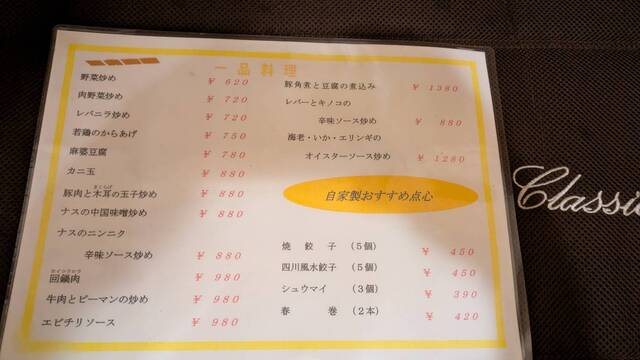 一品料理
野菜炒め ￥ 620
肉野菜炒め ￥ 720
レバニラ炒め ￥ 720
若鶏のからあげ ￥ 750
麻婆豆腐 ￥ 780
カニ玉 ￥ 880
豚肉と木耳の玉子炒め ￥ 880
きくらげ
ナスの中国味噌炒め ￥ 880
ナスのニンニク
辛味ソース炒め ￥ 880
ホイコウロウ
回鍋肉 ￥ 980
牛肉とピーマンの炒め ￥ 980
エビチリソース ￥ 980
豚角煮と豆腐の煮込み ￥ 1380
レバーとキノコの
辛味ソース炒め ￥ 880
海老・いか・エリンギの
オイスターソース炒め ￥ 1280
自家製おすすめ点心
焼餃子 (5個) ￥ 450
四川風水餃子 (5個) ￥ 450
シュウマイ (3個) ￥ 390
春巻 (2本) ￥ 420